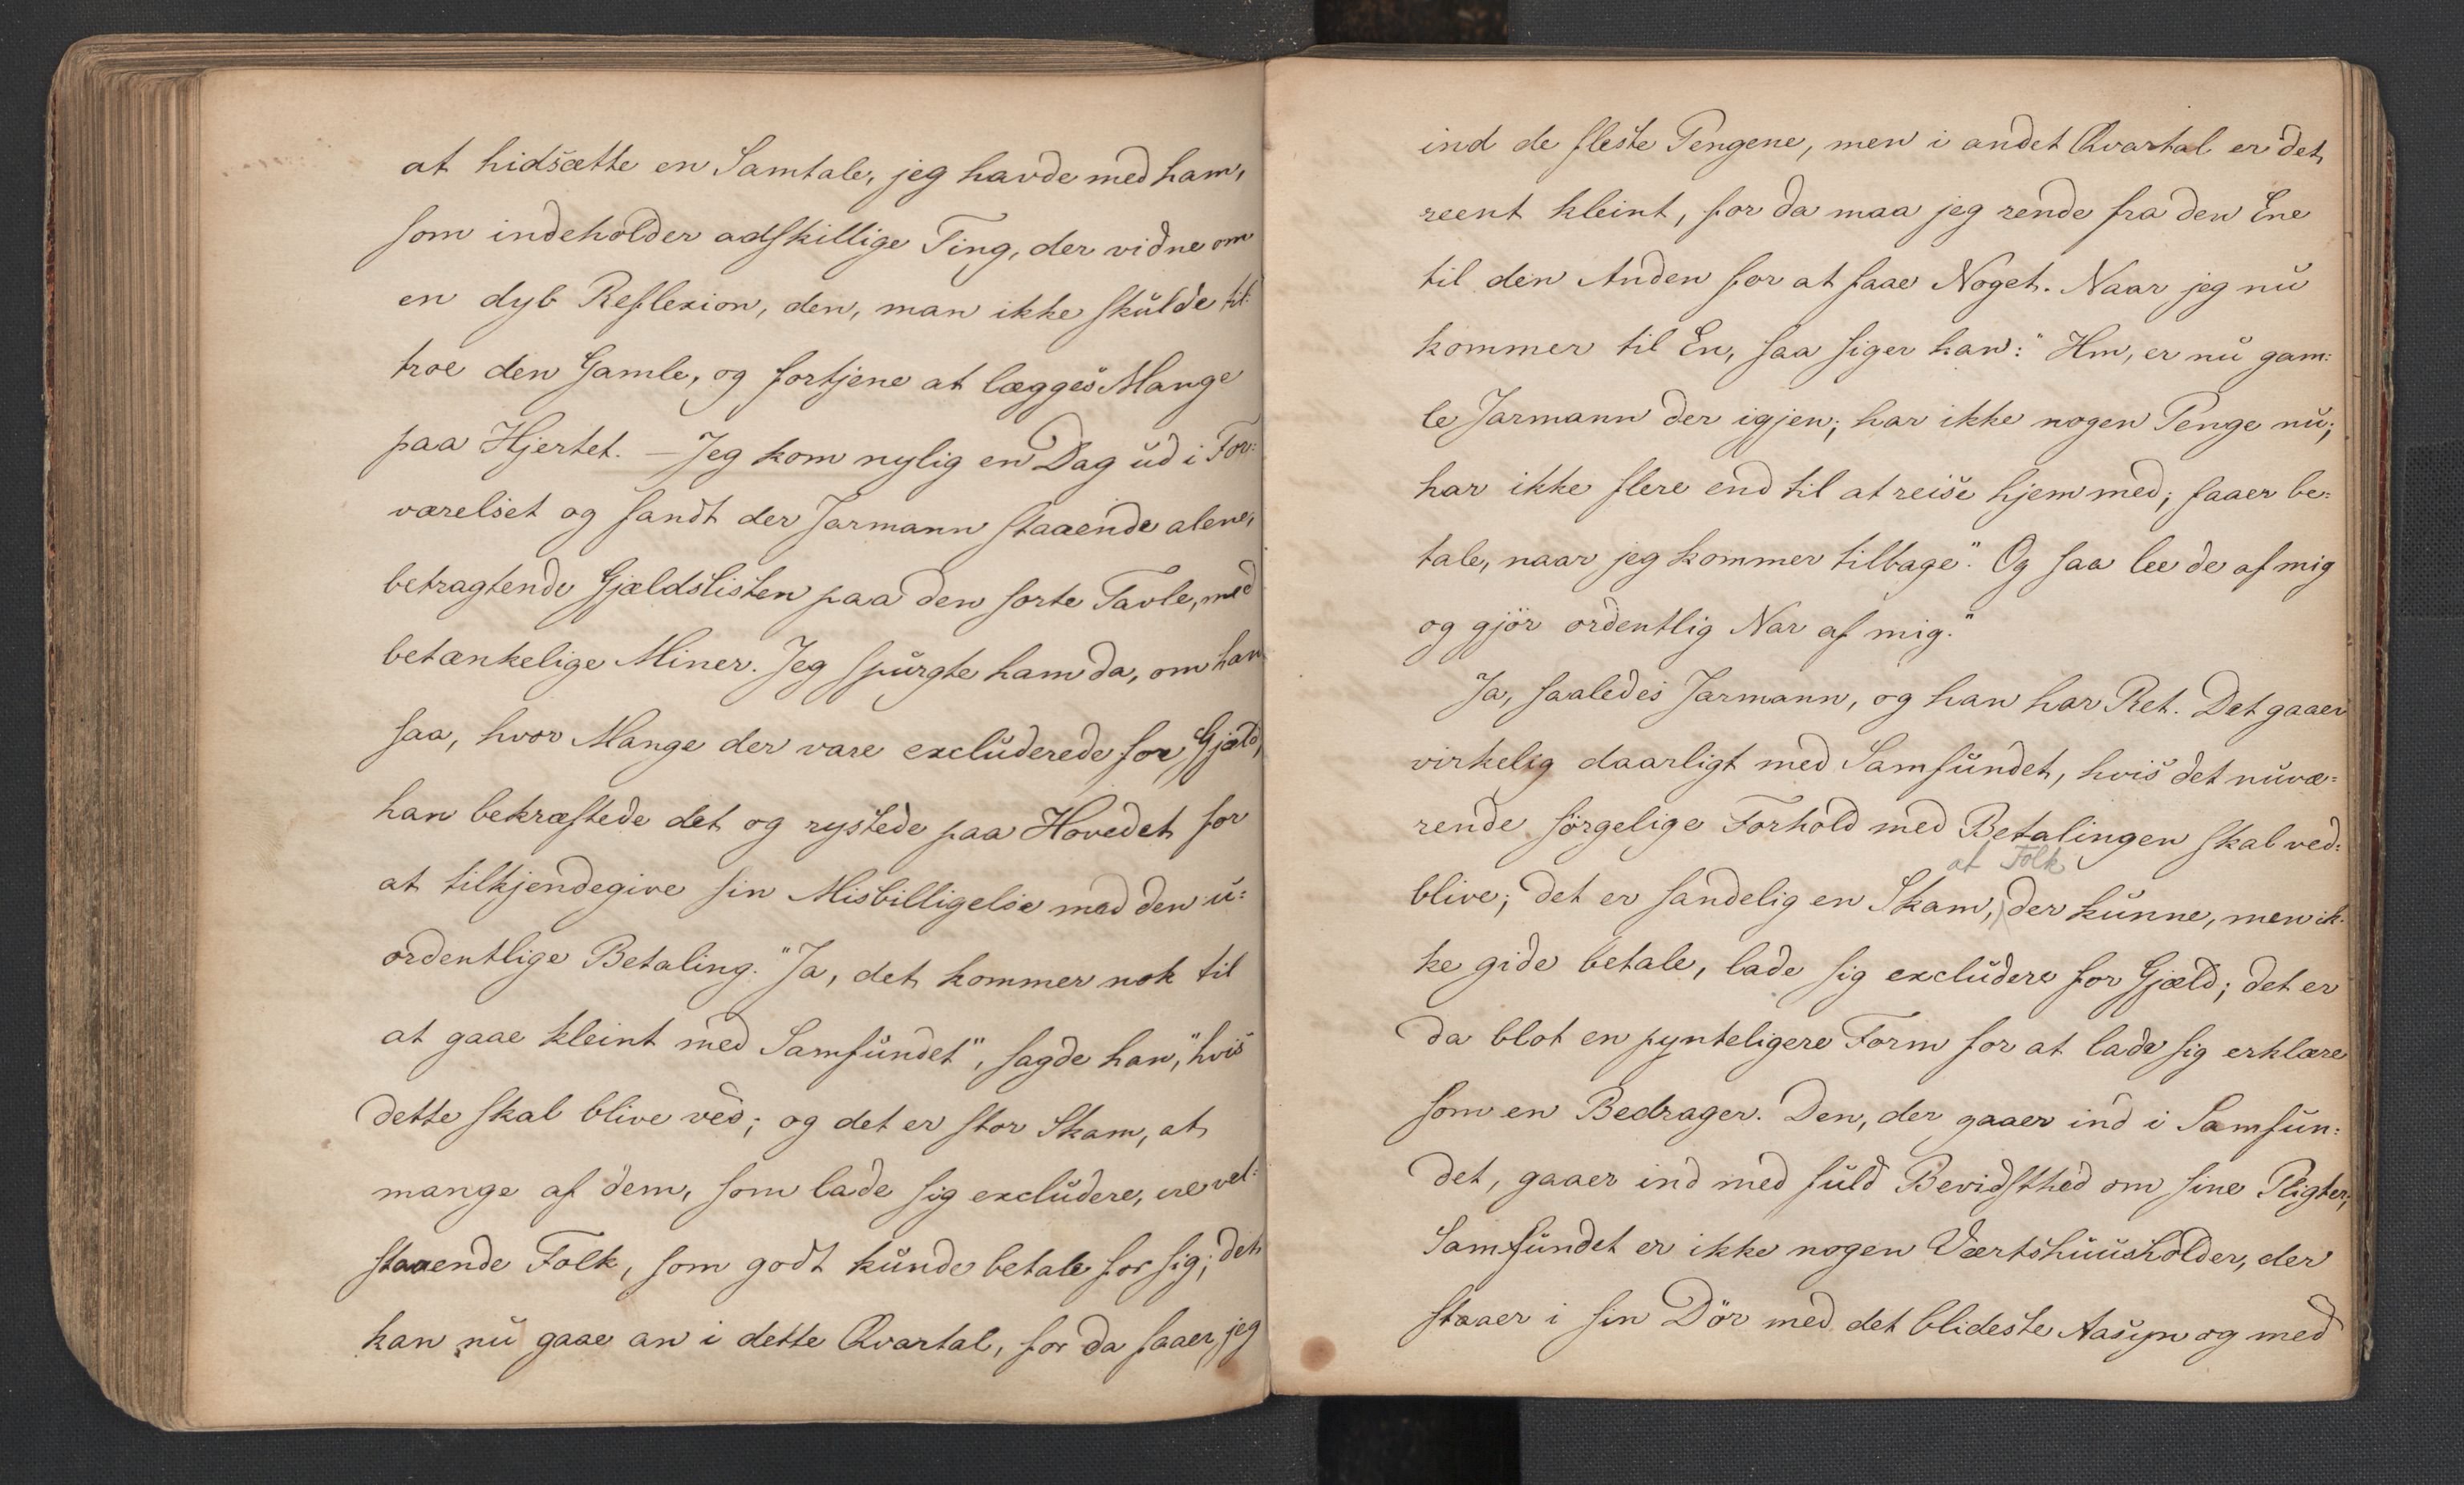 at hidsætte en Samtale, jeg havde med ham,
som indeholder adskillige Ting, der vidne om
en dyb Reflexion, den, man ikke skulde til:
troe den Gamle, og fortjene at lægges Mange
paa Hjertet. — Jeg kom nylig en Dag ud i For:
værelset og fandt der Jarmann staaende alene,
betragtende Gjældslisten paa den sorte Tavle, med
betænkelige Miner. Jeg spurgte ham da, om han
saa, hvor Mange der vare excluderede for Gjæld,
han bekræftede det og rystede paa Hovedet for
at tilkjendegive sin Misbilligelse med den u:
ordentlige Betaling. "Ja, det kommer nok til
at gaae kleint med Samfundet", sagde han, "hvis
dette skal blive ved; og det er stor Skam, at
mange af dem, som lade sig excludere, ere vel:
staaende Folk, som godt kunde betale for sig; det
kan nu gaae an i dette Qvartal, for da faaer jeg
ind de fleste Pengene, men i andet Qvartal er det
reent kleint, for da maa jeg rende fra den Ene
til den Anden for at faae Noget. Naar jeg nu
kommer til En, saa siger han: "Hm, er nu gam:
le Jarmann der igjen; har ikke nogen Penge nu;
har ikke flere end til at reise hjem med; faaer be:
tale, naar jeg kommer tilbage". Og saa lee de af mig
og gjör ordentlig Nar af mig."
Ja, saaledes Jarmann, og han har Ret. Det gaaer
virkelig daarligt med Samfundet, hvis det nuvæ:
rende sörgelige Forhold med Betalingen skal ved:
at Folk
blive; det er sandelig en Skam, der kunne, men ik:
ke gide betale, lade sig excludere for Gjæld; det er
da blot en pynteligere Form for at lade sig erklære
som en Bedrager. Den, der gaaer ind i Samfun:
det, gaaer ind med fuld Bevidsthed om sine Pligter;
Samfundet er ikke nogen Værtshuusholder, der
staaer i sin Dör med det blideste Aasyn og med